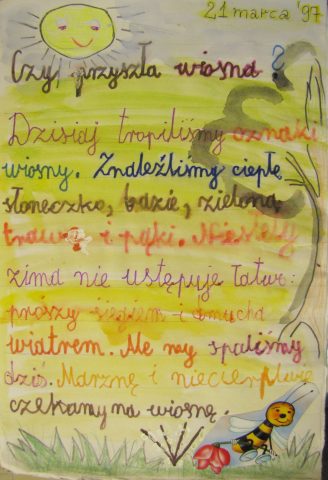 21 marca '97
Czy przyszła wiosna?
Dzisiaj tropiliśmy oznaki
wiosny. Znaleźliśmy ciepłe
słoneczko, bazie, zieloną
trawę i pąki. Niestety
zima nie ustępuje łatwo:
prószy śniegiem i dmucha
wiatrem. Ale my spaliśmy
dziś. Marznę i niecierpliwie
czekamy na wiosnę.